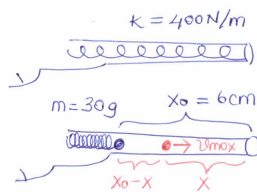 K = 400N/m
m=30g
x₀ = 6cm
υmax
x₀-x
x